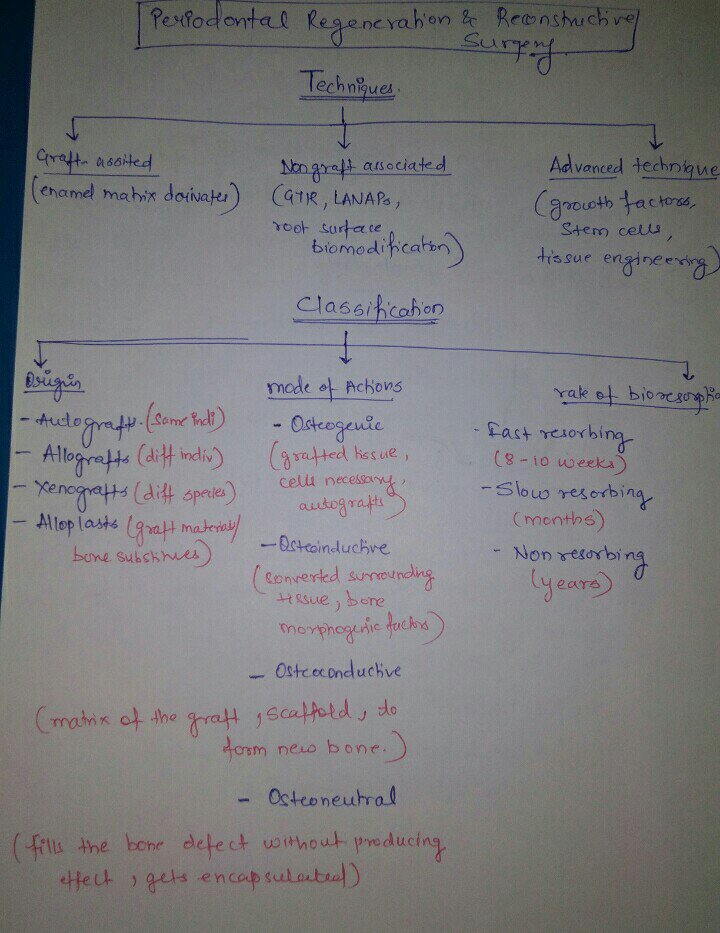 Periodontal Regeneration & Reconstructive
Surgery.
Techniques.
Graft assited
(enamel matrix derivates)
Nongraft associated
(GTR, LANAPs,
root surface
biomodification)
Advanced technique
(growth factors,
Stem cells,
tissue engineering)
Classification
Origin
- Autograft. (same indi)
- Allografts (diff indiv)
- Xenografts (diff species)
- Alloplasts (graft materials/
bone substitues)
mode of Actions
- Osteogenic
(grafted tissue,
cells necessary,
autografts)
- Osteoinductive
(converted surrounding
tissue, bone
morphogenic factors)
- Osteoconductive
(matrix of the graft, scaffold, to
form new bone.)
- Osteoneutral
(fills the bone defect without producing
effect, gets encapsulated)
rate of bioresorptio
- Fast resorbing
(8-10 weeks)
- Slow resorbing
(months)
- Non resorbing
(years)